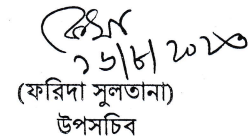 ১৬/৮/২০২৩
(ফরিদা সুলতানা)
উপসচিব